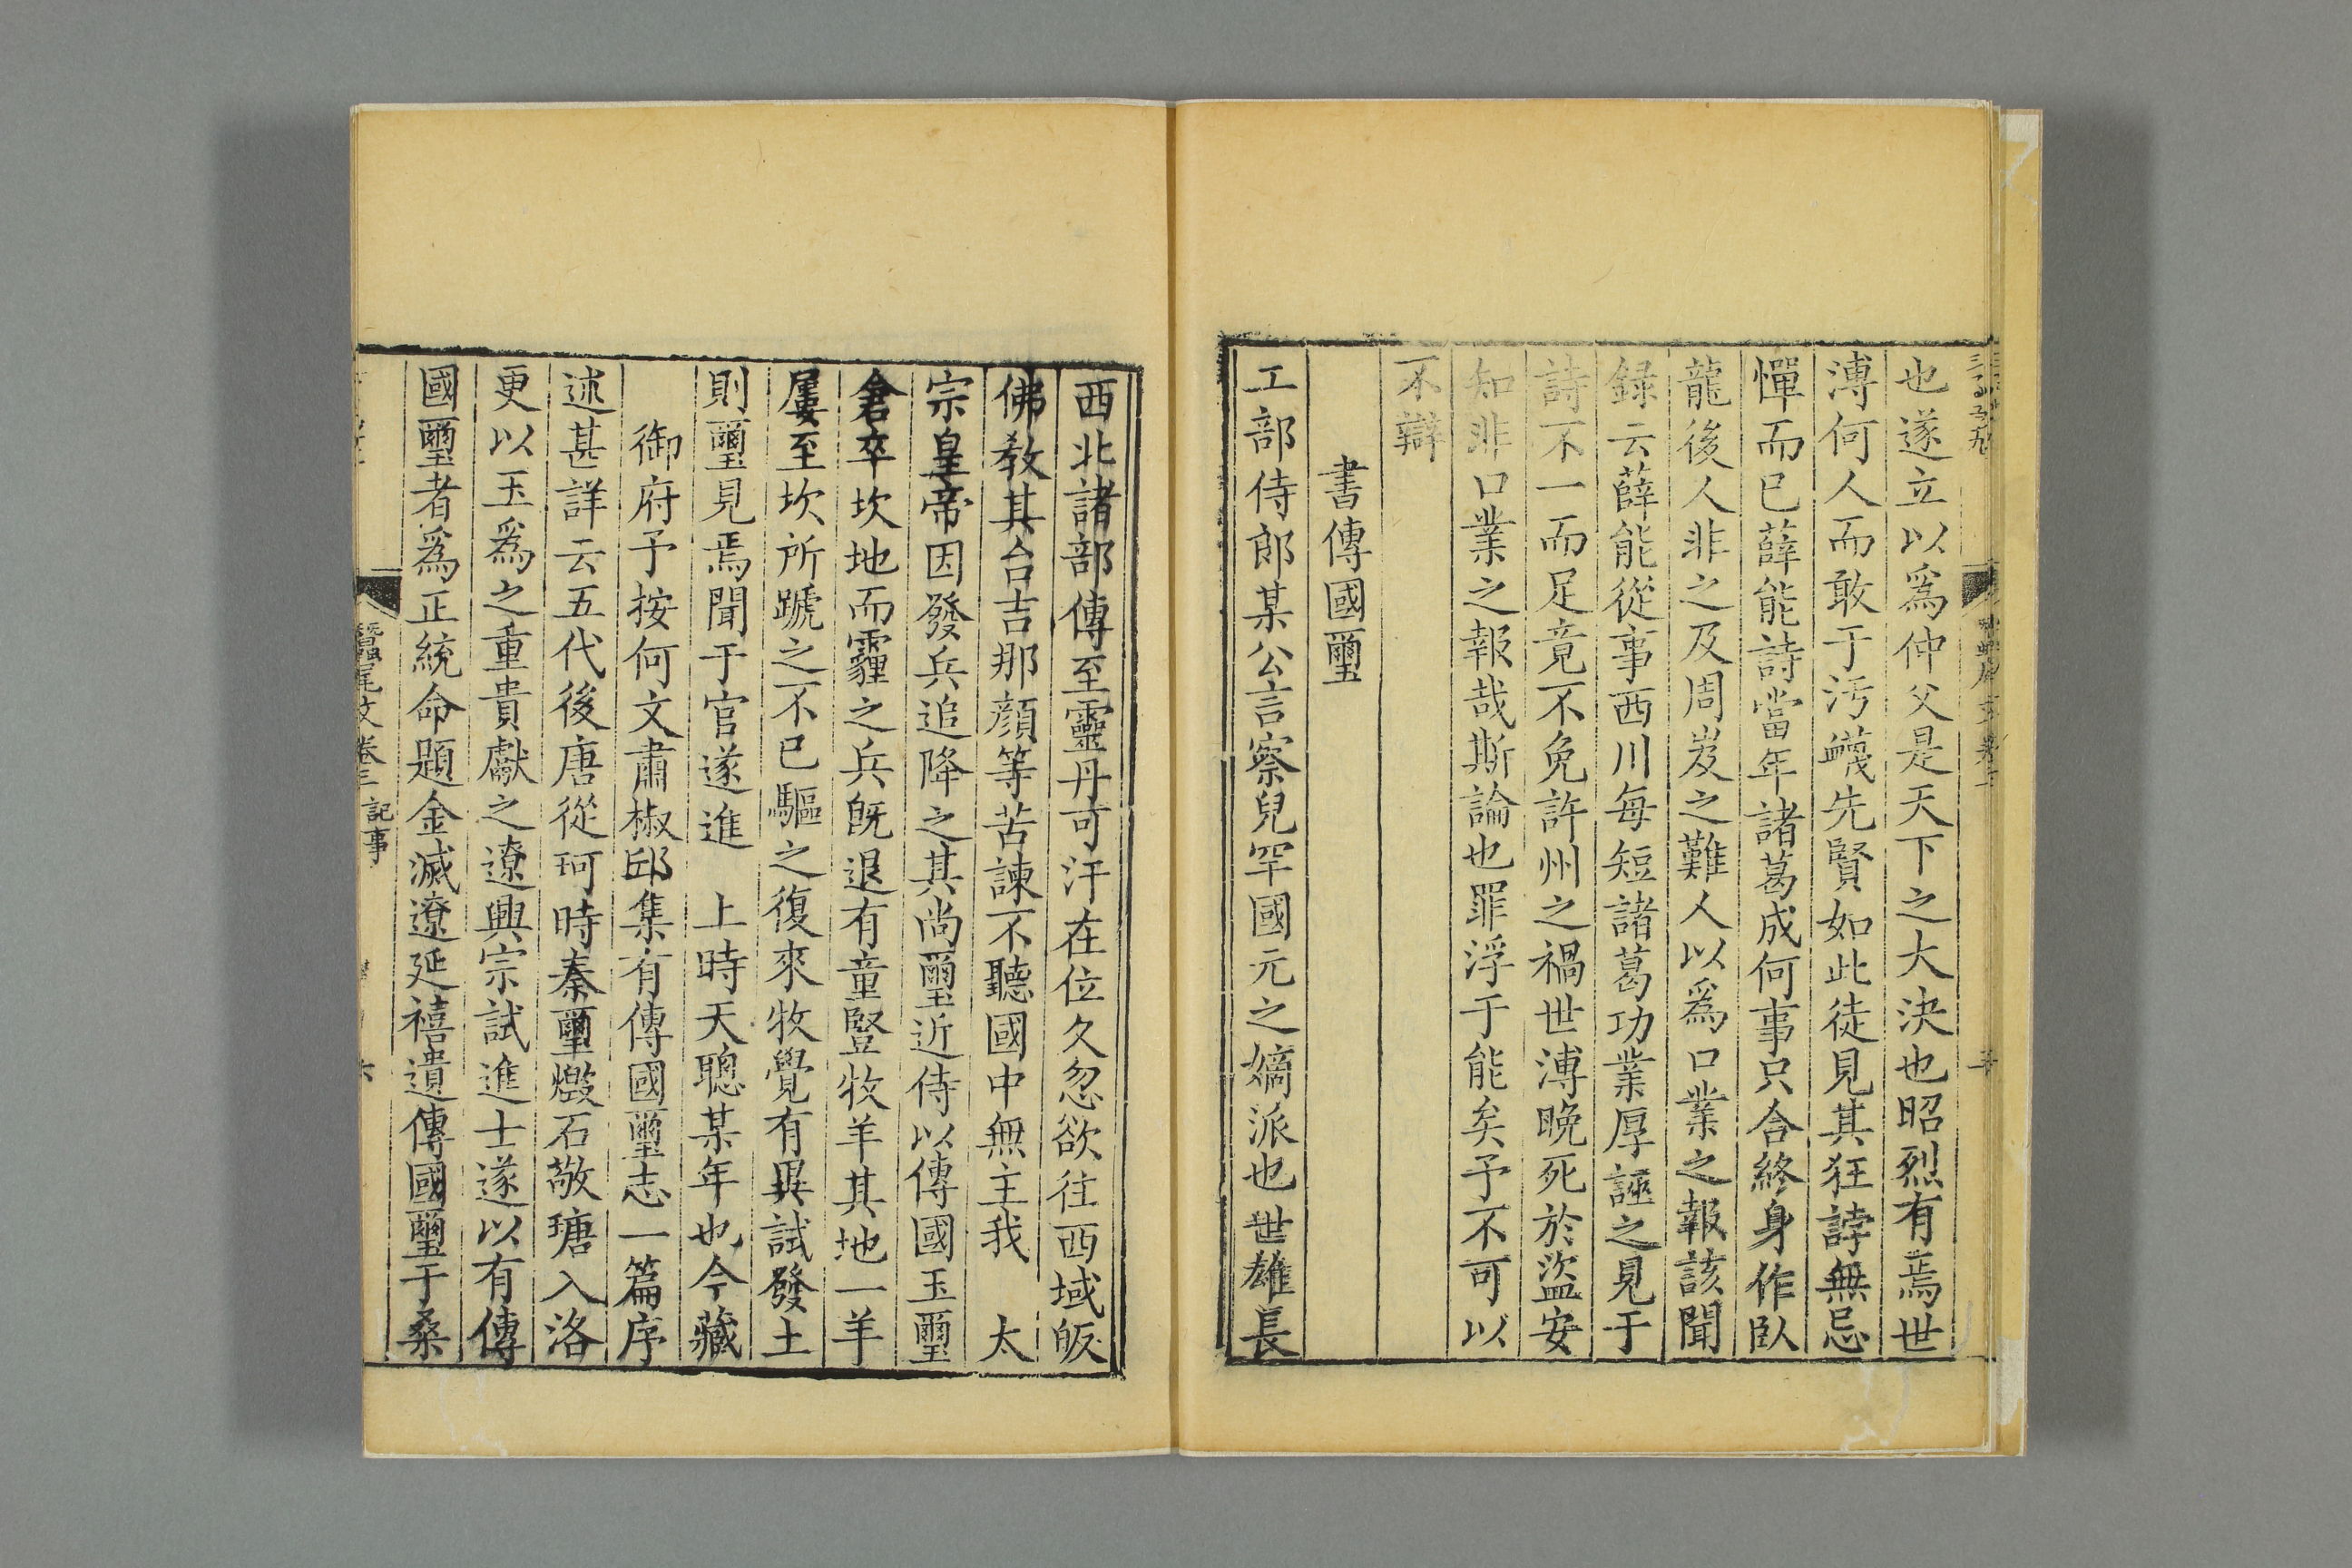 也遂立以爲仲父是天下之大決也昭烈有焉世
漙何人而敢于汚衊先賢如此徒見其狂誖無忌
憚而已薛能詩當年諸葛成何事只合終身作臥
龍後人非之及周岌之難人以爲口業之報該聞
録云薛能從事西川每短諸葛功業厚誣之見于
詩不一而足竟不免許州之禍世漙晚死於盜安
知非口業之報哉斯論也罪浮于能矣予不可以
不辯
書傳國璽
工部侍郎某公言察兒罕國元之嫡派也世雄長
西北諸部傳至靈丹可汗在位久忽欲往西域皈
佛教其台吉那顔等苦諫不聽國中無主我 太
宗皇帝因發兵追降之其尚璽近侍以傳國玉璽
倉卒坎地而霾之兵既退有童豎牧羊其地一羊
屢至坎所蹏之不已驅之復來牧覺有異試發土
則璽見焉聞于官遂進 上時天聰某年也今藏
御府予按何文肅椒邱集有傳國璽志一篇序
述甚詳云五代後唐從珂時秦璽燬石敬瑭入洛
更以玉爲之重貴獻之遼興宗試進士遂以有傳
國璽者爲正統命題金滅遼延禧遺傳國璽于桑
蠶尾文卷三 記事
六